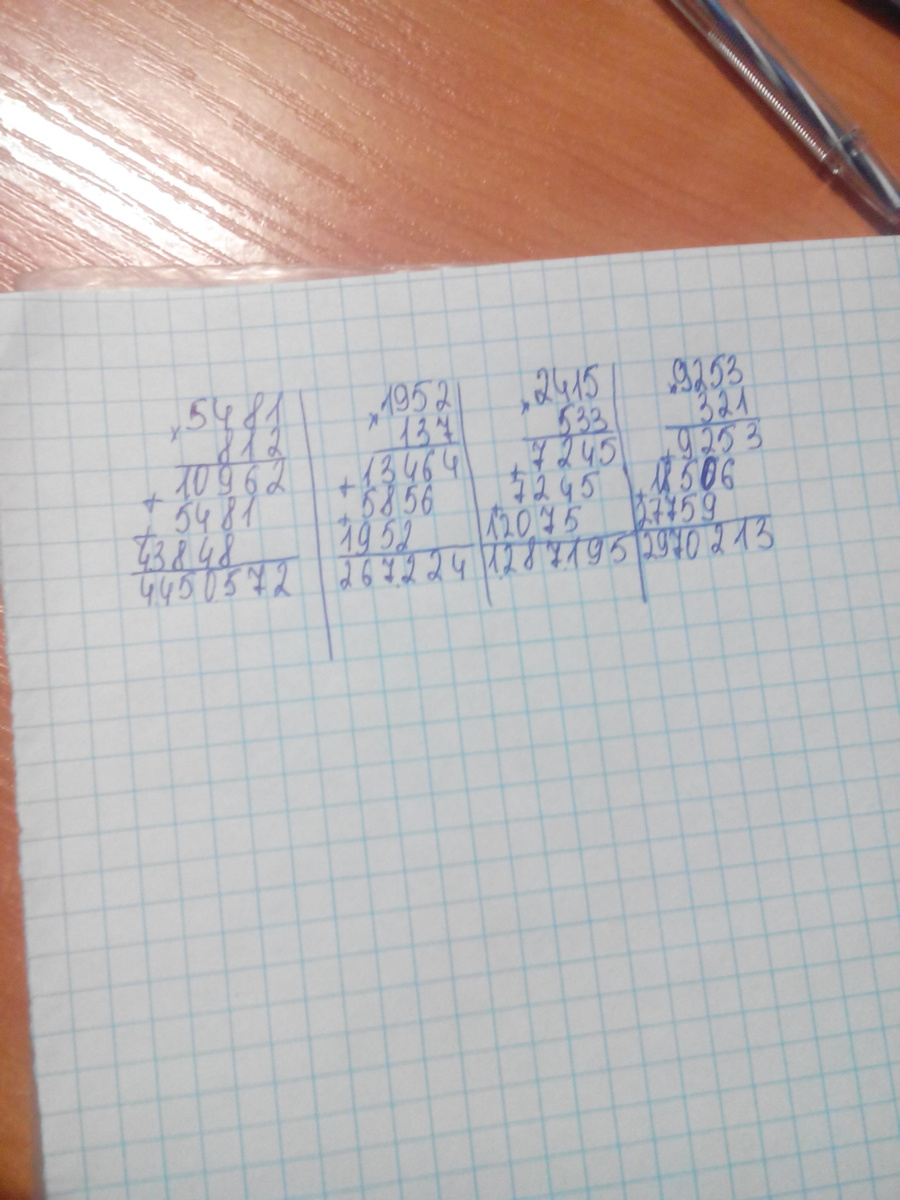 ×5481
812
10962
+
5481
+
43848
4450572
×1952
137
13464
+
5856
+
1952
267224
×2415
533
7245
+
7245
+
12075
1287195
×9253
321
9253
+
18506
+
27759
2970213